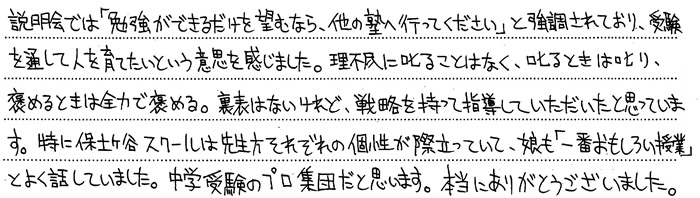 説明会では「勉強ができるだけを望むなら、他の塾へ行ってください」と強調されており、受験
を通して人を育てたいという意思を感じました。理不尽に叱ることはなく、叱るときは叱り、
褒めるときは全力で褒める。裏表はないけれど、戦略を持って指導していただいたと思っていま
す。特に保土ヶ谷スクールは先生方それぞれの個性が際立っていて、娘も「一番おもしろい授業」
とよく話していました。中学受験のプロ集団だと思います。本当にありがとうございました。